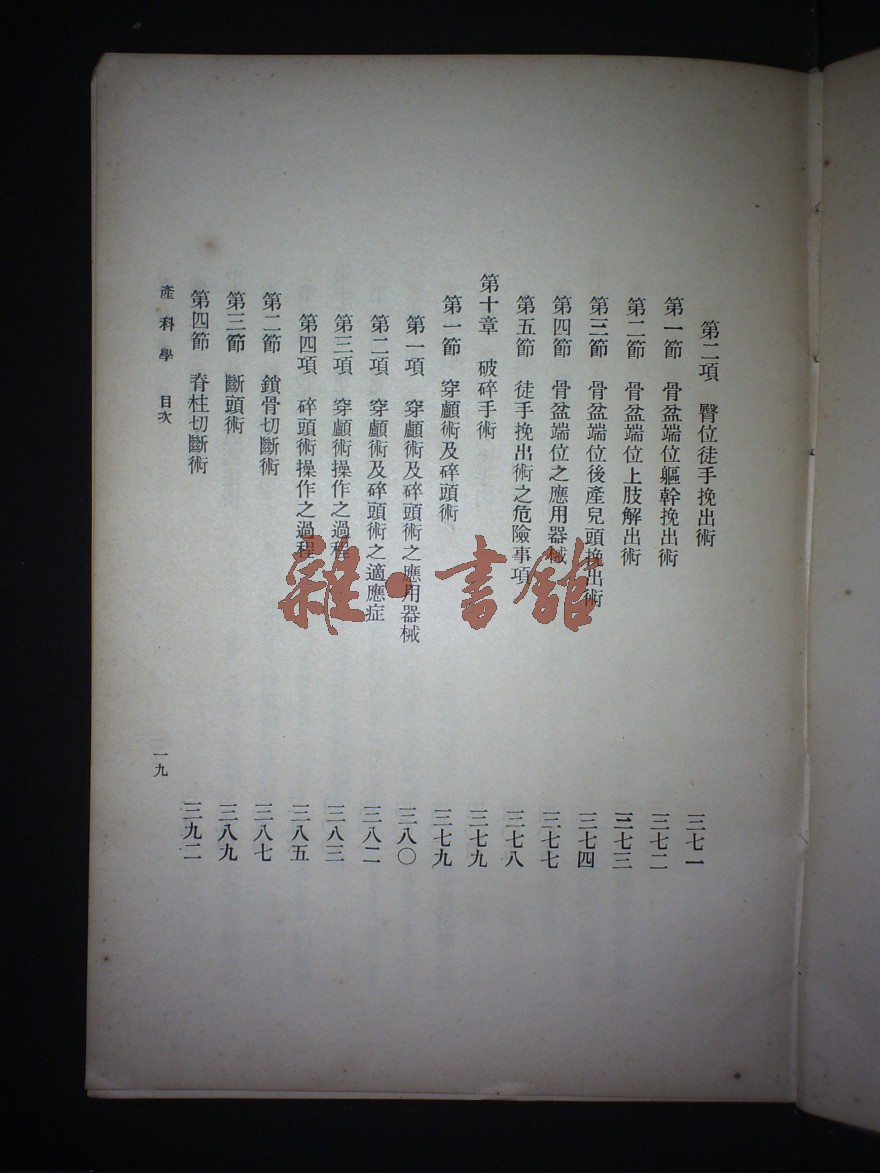 第二項 臀位徒手挽出術 三七一
第一節 骨盆端位軀幹挽出術 三七二
第二節 骨盆端位上肢解出術 三七三
第三節 骨盆端位後產兒頭挽出術 三七四
第四節 骨盆端位之應用器械 三七七
第五節 徒手挽出術之危險事項 三七八
第十章 破碎手術 三七九
第一節 穿顱術及碎頭術 三七九
第一項 穿顱術及碎頭術之應用器械 三八〇
第二項 穿顱術及碎頭術之適應症 三八二
第三項 穿顱術操作之過程 三八三
第四項 碎頭術操作之過程 三八五
第二節 鎖骨切斷術 三八七
第三節 斷頭術 三八九
第四節 脊柱切斷術 三九二
產科學 目次 一九
雜·書館